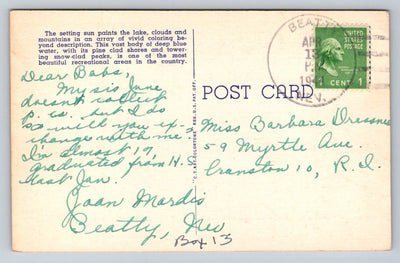 The setting sun paints the lake, clouds and
mountains in an array of vivid coloring be-
yond description. This vast body of deep blue
water, with its pine clad shores and tower-
ing snow-clad peaks, is one of the most
beautiful recreational areas in the country.
Dear Babs,
My sis Jane
doesn't collect
p. cs. but I do
so will you ex-
change with me.
I'm almost 17,
graduated from H.
last Jan.
Joan Mardis
Beatty, Nev
Box 13
POST CARD
BEATTY
APR
NEV.
UNITED STATES POSTAGE
1 CENT 1
Miss Barbara Dressner
59 Myrtle Ave.
Cranston 10, R.I.